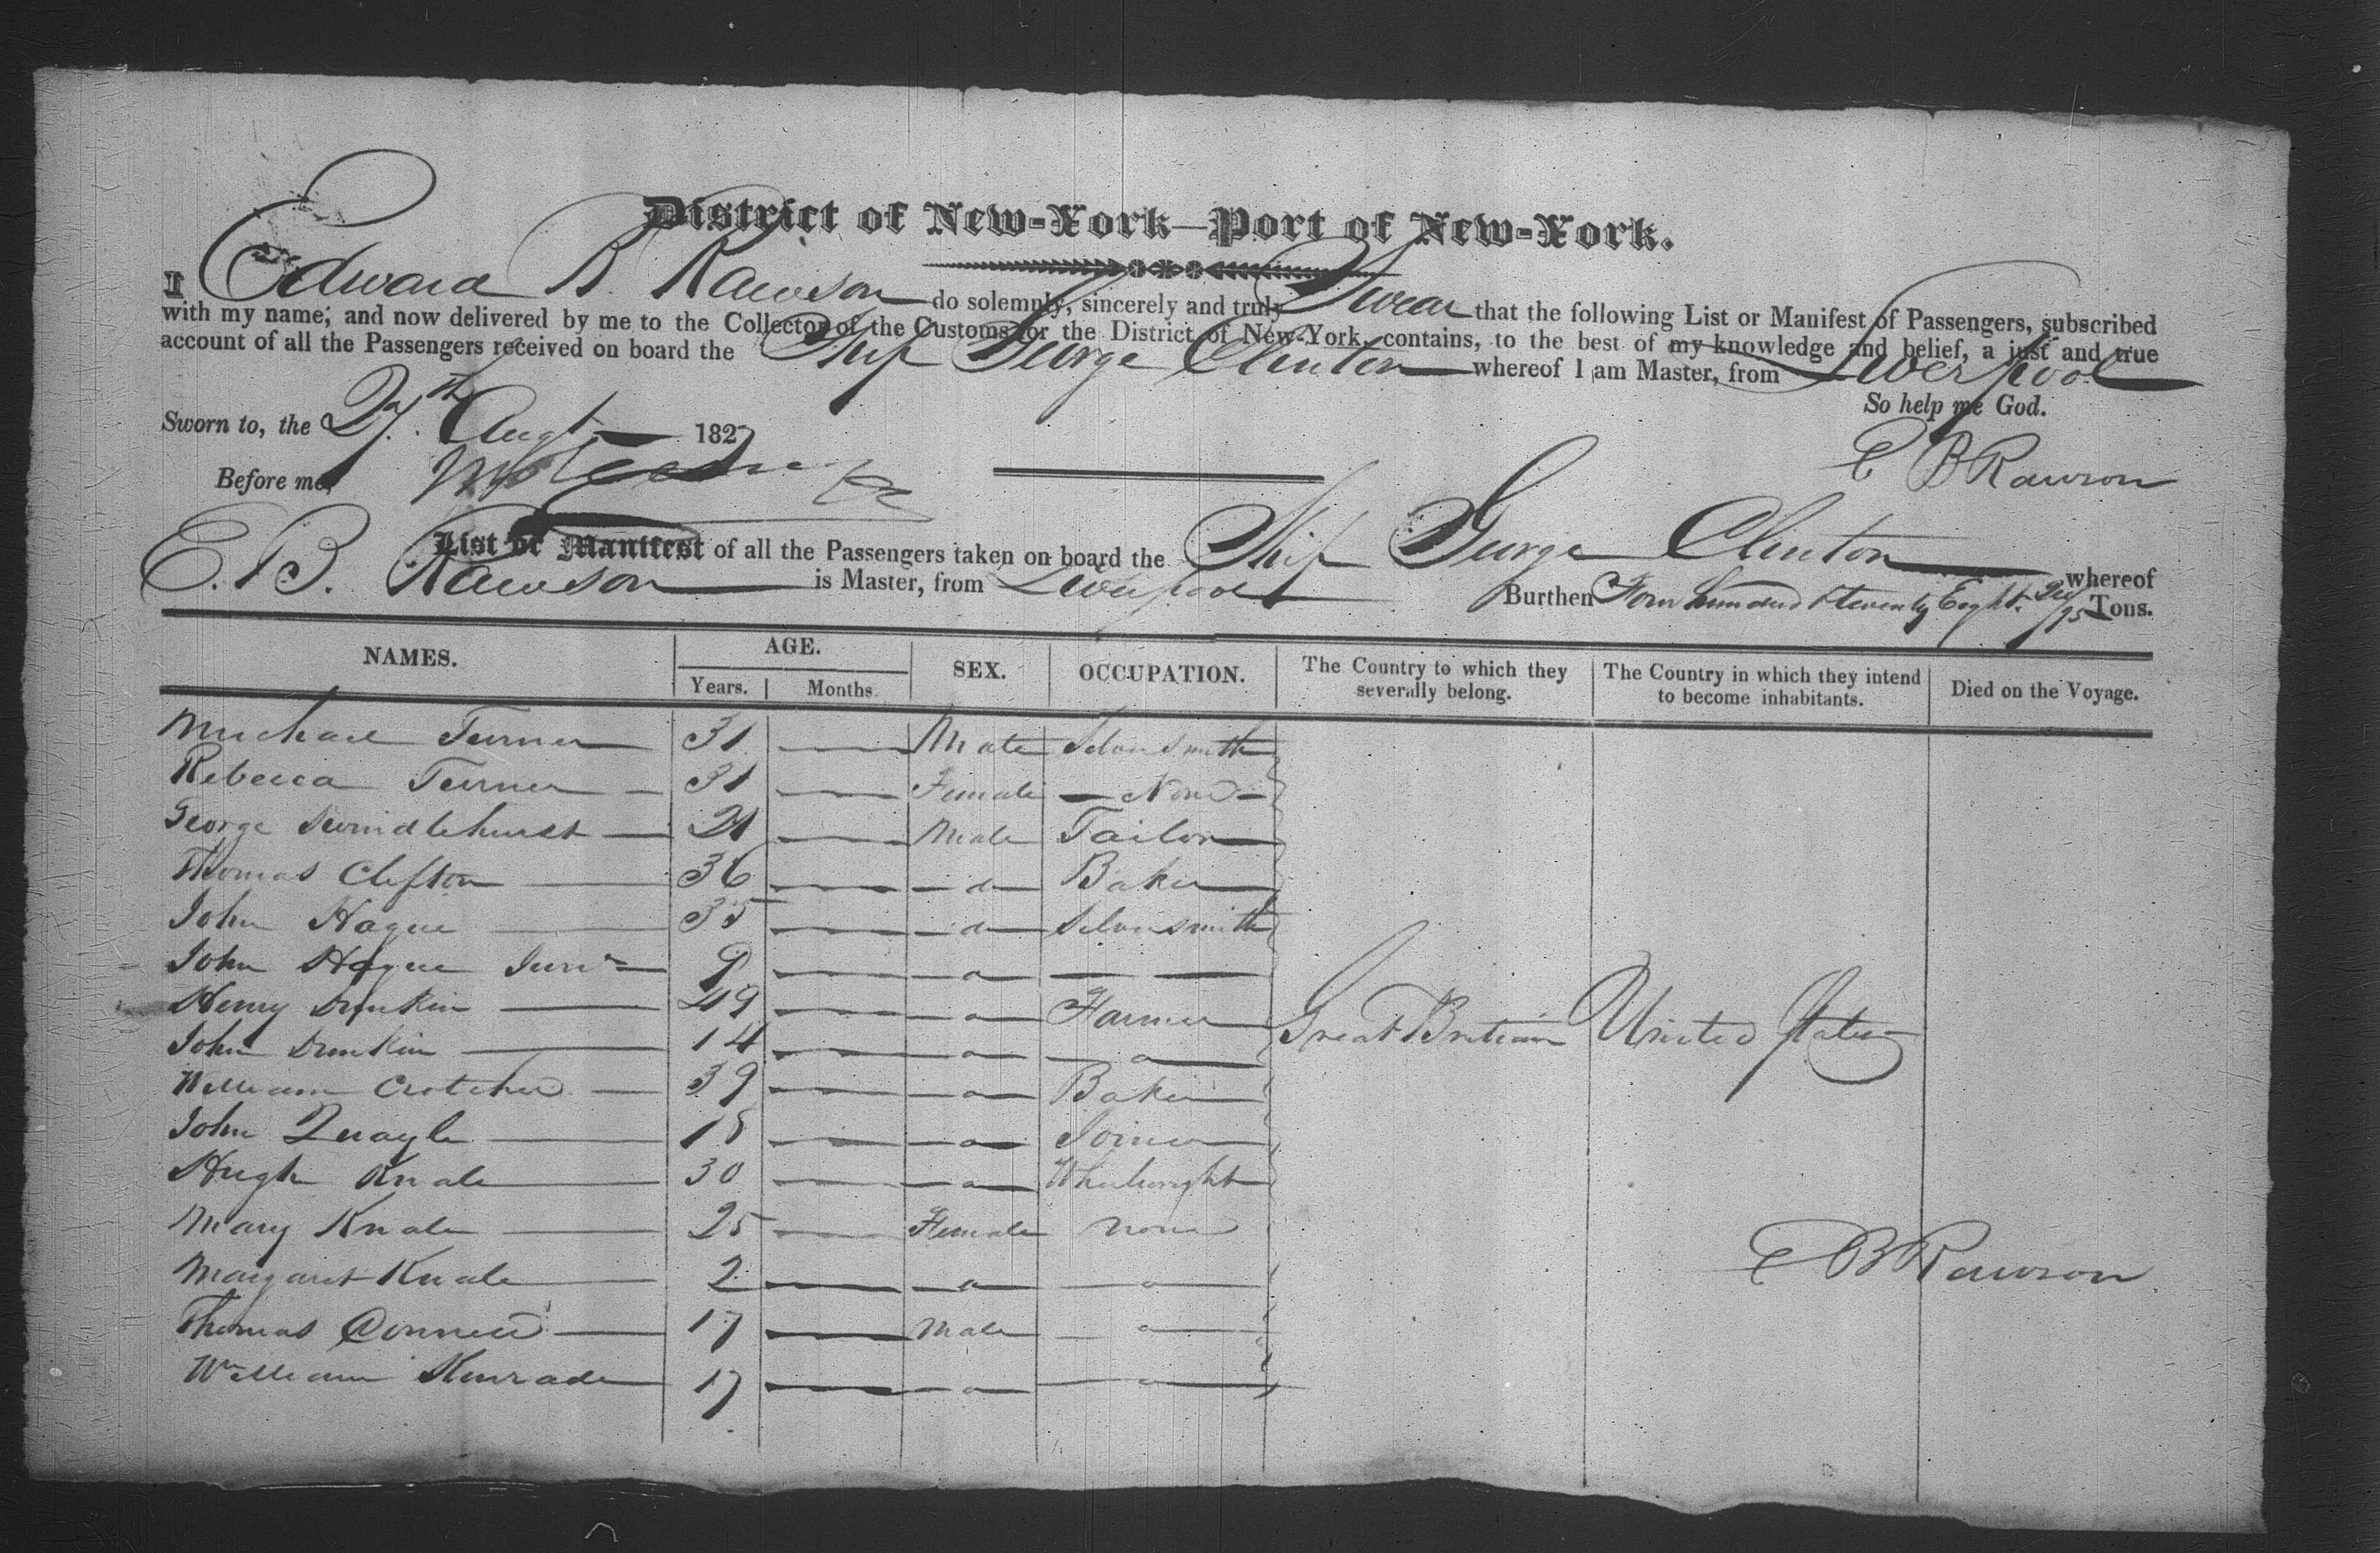 District of New-York—Port of New-York.
I Edward B. Rawson do solemnly, sincerely and truly Swear that the following List or Manifest of Passengers, subscribed
with my name, and now delivered by me to the Collector of the Customs for the District of New-York, contains, to the best of my knowledge and belief, a just and true
account of all the Passengers received on board the Ship George Clinton whereof I am Master, from Liverpool
So help me God.
Sworn to, the 27th Augt 1827
E B Rawson
Before me,
List or Manifest of all the Passengers taken on board the Ship George Clinton whereof
E. B. Rawson is Master, from Liverpool Burthen Four hundred & twenty Eight /95 Tons.
NAMES. AGE. SEX. OCCUPATION. The Country to which they severally belong. The Country in which they intend to become inhabitants. Died on the Voyage.
Years. Months
Michael Turner 31 Male Silversmith
Rebecca Turner 31 Female None
George Swindlehurst 21 Male Tailor
Thomas Clifton 36 do Baker
John Hague 35 do Silversmith
John Hague Junr 9 do
Henry Dunkin 49 do Farmer Great Britain United States
John Dunkin 14 do do
William Crotcher 39 do Baker
John Quayle 18 do Joiner
Hugh Knale 30 do Wheelwright
Mary Knale 25 Female none
Margaret Knale 2 do do
E B Rawson
Thomas Connell 17 Male do
William Kinrade 17 do do